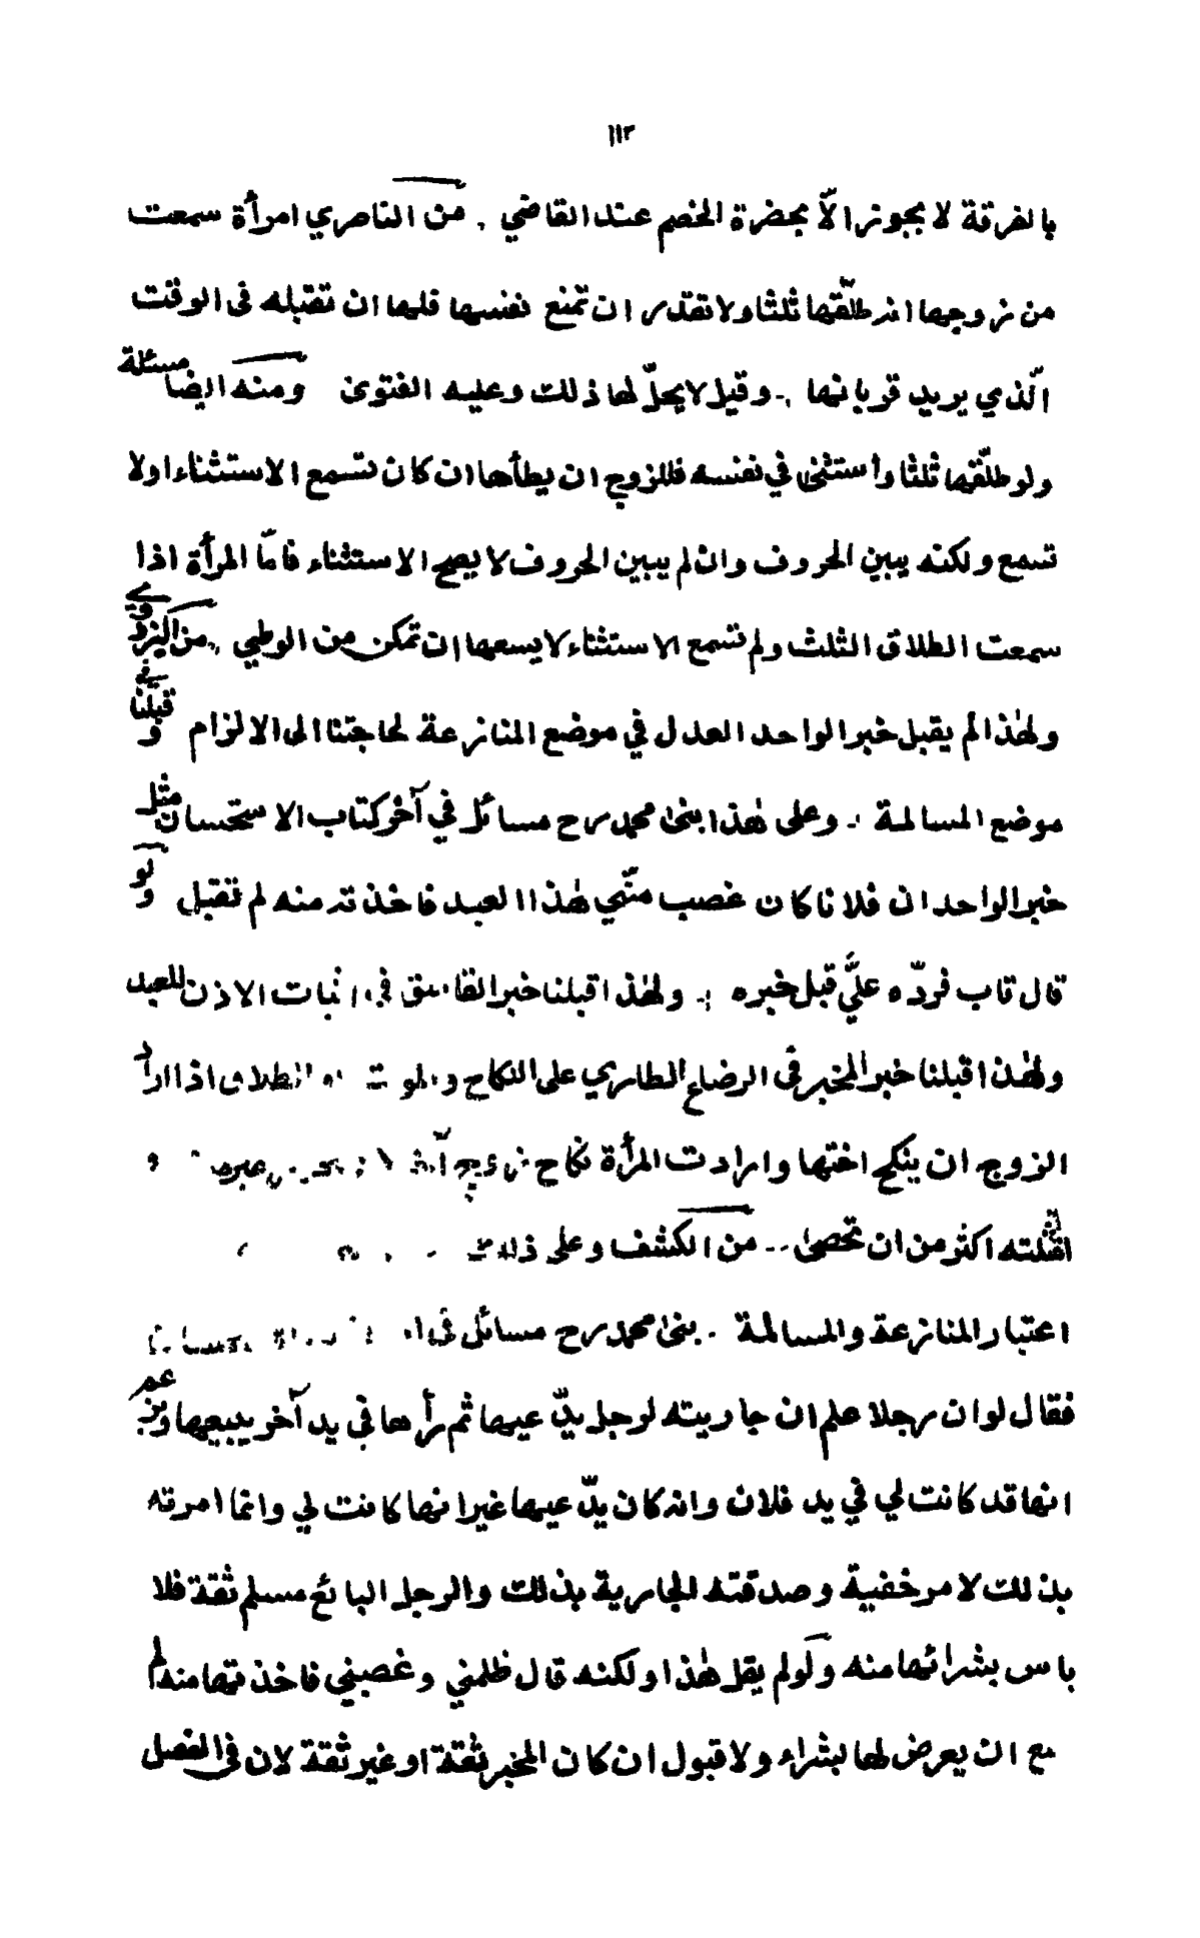 ١١٣
بالفرقة لا يجوز الاّ بحضرة الخصم عند القاضي . من الناصري امرأة سمعت
من زوجها انه طلّقها ثلثا ولا تقدر ان تمنع نفسها فلها ان تقتله فى الوقت
الّذي يريد قربانها .. وقيل لا يحلّ لها ذلك وعليه الفتوى ومنه ايضا مسئلة
ولو طلّقها ثلثا وأستثنى في نفسه فللزوج ان يطأها ان كان تسمع الاستثناء اولا
تسمع ولكنه يبين الحروف وان لم يبين الحروف لا يصح الاستثناء فامّا المرأة اذا
سمعت الطلاق الثلث ولم تسمع الاستثناء لا يسعها ان تمكن من الوطي .. من البزدوي
ولهذا لم يقبل خبر الواحد العدل في موضع المنازعة لحاجتنا الى الالزام وقبلنا في
موضع المسالمة .. وعلى هذا بنى محمد رح مسائل في آخر كتاب الاستحسان مثل
خبر الواحد ان فلانا كان غصب منّي هذا العبد فاخذته منه لم تقبل ولو
قال تاب فردّه عليَّ قبل خبره .. ولهذا قبلنا خبر الفاسق في اثبات الاذن للعبد
ولهذا قبلنا خبر المخبر فى الرضاع الطاري على النكاح والموت والطلاق اذا اراد
الزوج ان ينكح اختها وارادت المرأة نكاح زوج آخر و
امثلته اكثر من ان تحصى .. من الكشف وعلى ذلك
اعتبار المنازعة والمسالمة .. بنى محمد رح مسائل في
فقال لو ان رجلا علم ان جاريته لرجل يدّعيها ثم رأها في يد آخر يبيعها وزعم
انها قد كانت لي في يد فلان وانه كان يدّعيها غير انها كانت لي وانما امرته
بذلك لامر خفية وصدقته الجارية بذلك والرجل البائع مسلم ثقة فلا
باس بشرائها منه ولو لم يقل هذا ولكنه قال ظلمني وغصبني فاخذتها منه لم
ان يعرض لها بشراء ولا قبول ان كان المخبر ثقة او غير ثقة لان فى الفصل